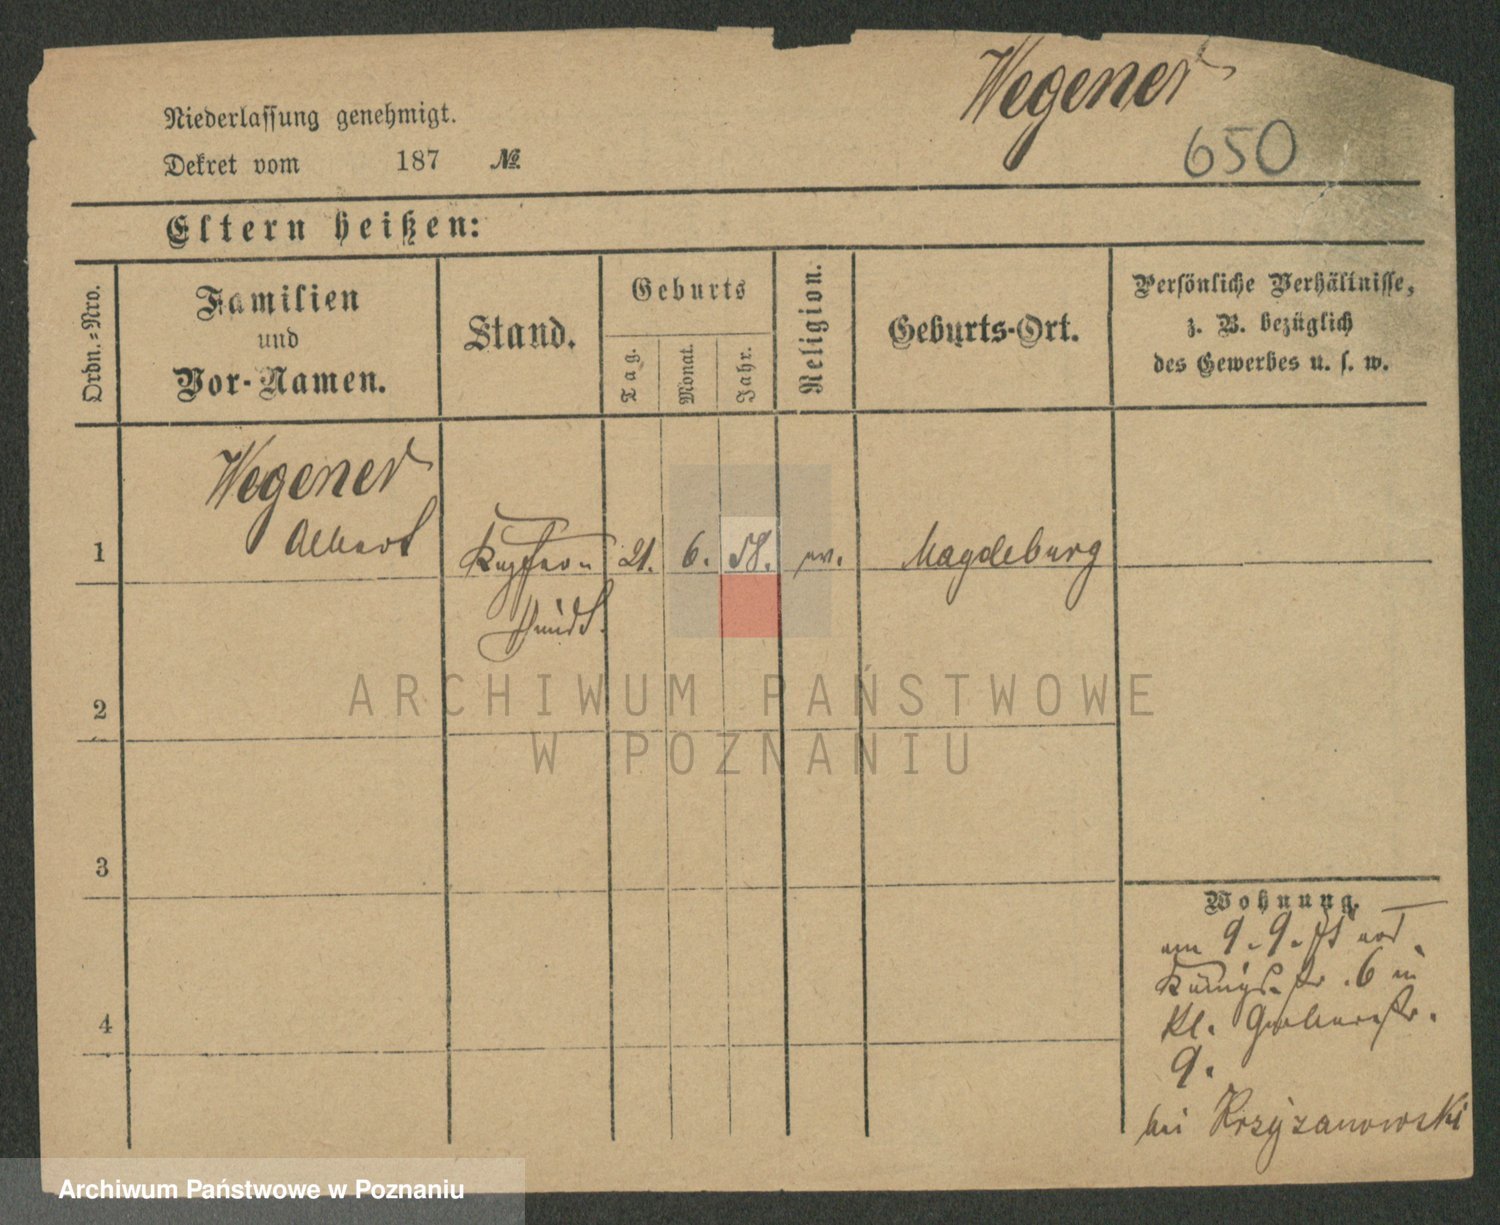 Wegener
650
Niederlassung genehmigt.
Dekret vom 187 №
Eltern heißen:
Ordn.=Nro.
Familien
und
Vor-Namen.
Stand.
Geburts
Tag.
Monat.
Jahr.
Religion.
Geburts-Ort.
Persönliche Verhältnisse,
z. B. bezüglich
des Gewerbes u. s. w.
Wegener
Albert
1 21. 6. 58. ev. Magdeburg
Kupfer
schmidt.
2
ARCHIWUM PAŃSTWOWE
W POZNANIU
3
4
Wohnung.
am 9. 9.
Königsstr. 6 in
Kl. Gerberstr.
9.
bei Krzyżanowski
Archiwum Państwowe w Poznaniu